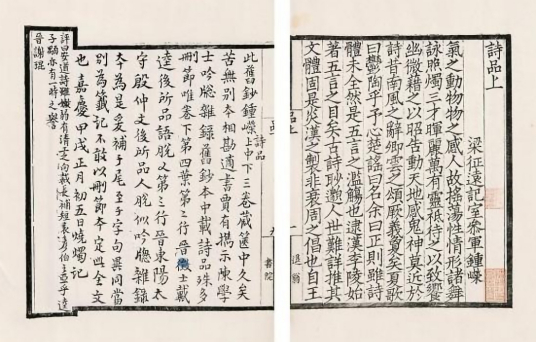 詩品上
梁征遠記室參軍鍾嶸
氣之動物物之感人故搖蕩性情形諸舞
詠照燭三才暉麗萬有靈祇待之以致饗
幽微藉之以昭告動天地感鬼神莫近於
詩昔南風之辭卿雲之頌厥義夐矣夏歌
曰鬱陶乎予心楚謠曰名余曰正則雖詩
體未全然是五言之濫觴也逮漢李陵始
著五言之目矣古詩眇邈人世難詳推其
文體固是炎漢之製非衰周之倡也自王
書院
此舊鈔鍾嶸詩品上中下三卷藏篋中久矣
苦無別本相勘適書賈有攜示陳學
士吟牕雜錄舊鈔本中載詩品殊多
刪節唯卷下第四葉第三行晉徵士戴
逵後所品語脫又第三行晉東陽太
守殷仲文後所品人脫似吟牕雜錄
本為是爰補于尾至于字句異同當
別為籤記不敢以刪節本定此全文
也嘉慶甲戌正月初五日燒燭記
評曰晏道詩雖嫩弱有清工之句裁長補短袁彥伯之亞乎逵
子顒亦有一時之譽
晉謝琨